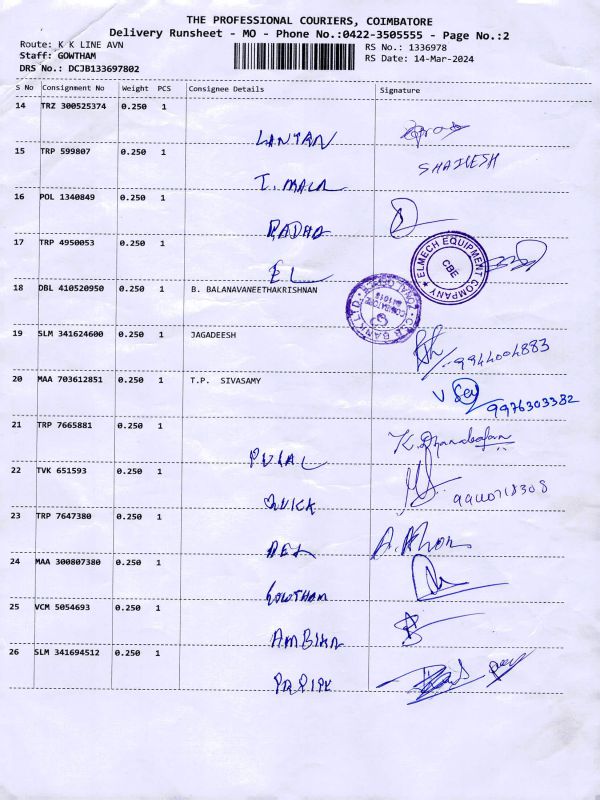 THE PROFESSIONAL COURIERS, COIMBATORE
Delivery Runsheet - MO - Phone No.:0422-3505555 - Page No.:2
Route: K K LINE AVN
RS No.: 1336978
Staff: GOWTHAM
RS Date: 14-Mar-2024
DRS No.: DCJB133697802
S No Consignment No Weight PCS Consignee Details Signature
14 TRZ 300525374 0.250 1
LANTRN
15 TRP 599807 0.250 1
SHAILESH
I. MALA
16 POL 1340849 0.250 1
RADHA
17 TRP 4950053 0.250 1
ELMECH EQUIPMENT COMPANY ★ CBE
EL
18 DBL 410520950 0.250 1 B. BALANAVANEETHAKRISHNAN
19 SLM 341624600 0.250 1 JAGADEESH
9944004883
20 MAA 703612851 0.250 1 T.P. SIVASAMY
9976303382
21 TRP 7665881 0.250 1
K. Dhanabalan
22 TVK 651593 0.250 1
QUICK
23 TRP 7647380 0.250 1
24 MAA 300807380 0.250 1
GOWTHAM
25 VCM 5054693 0.250 1
AMBIKA
26 SLM 341694512 0.250 1